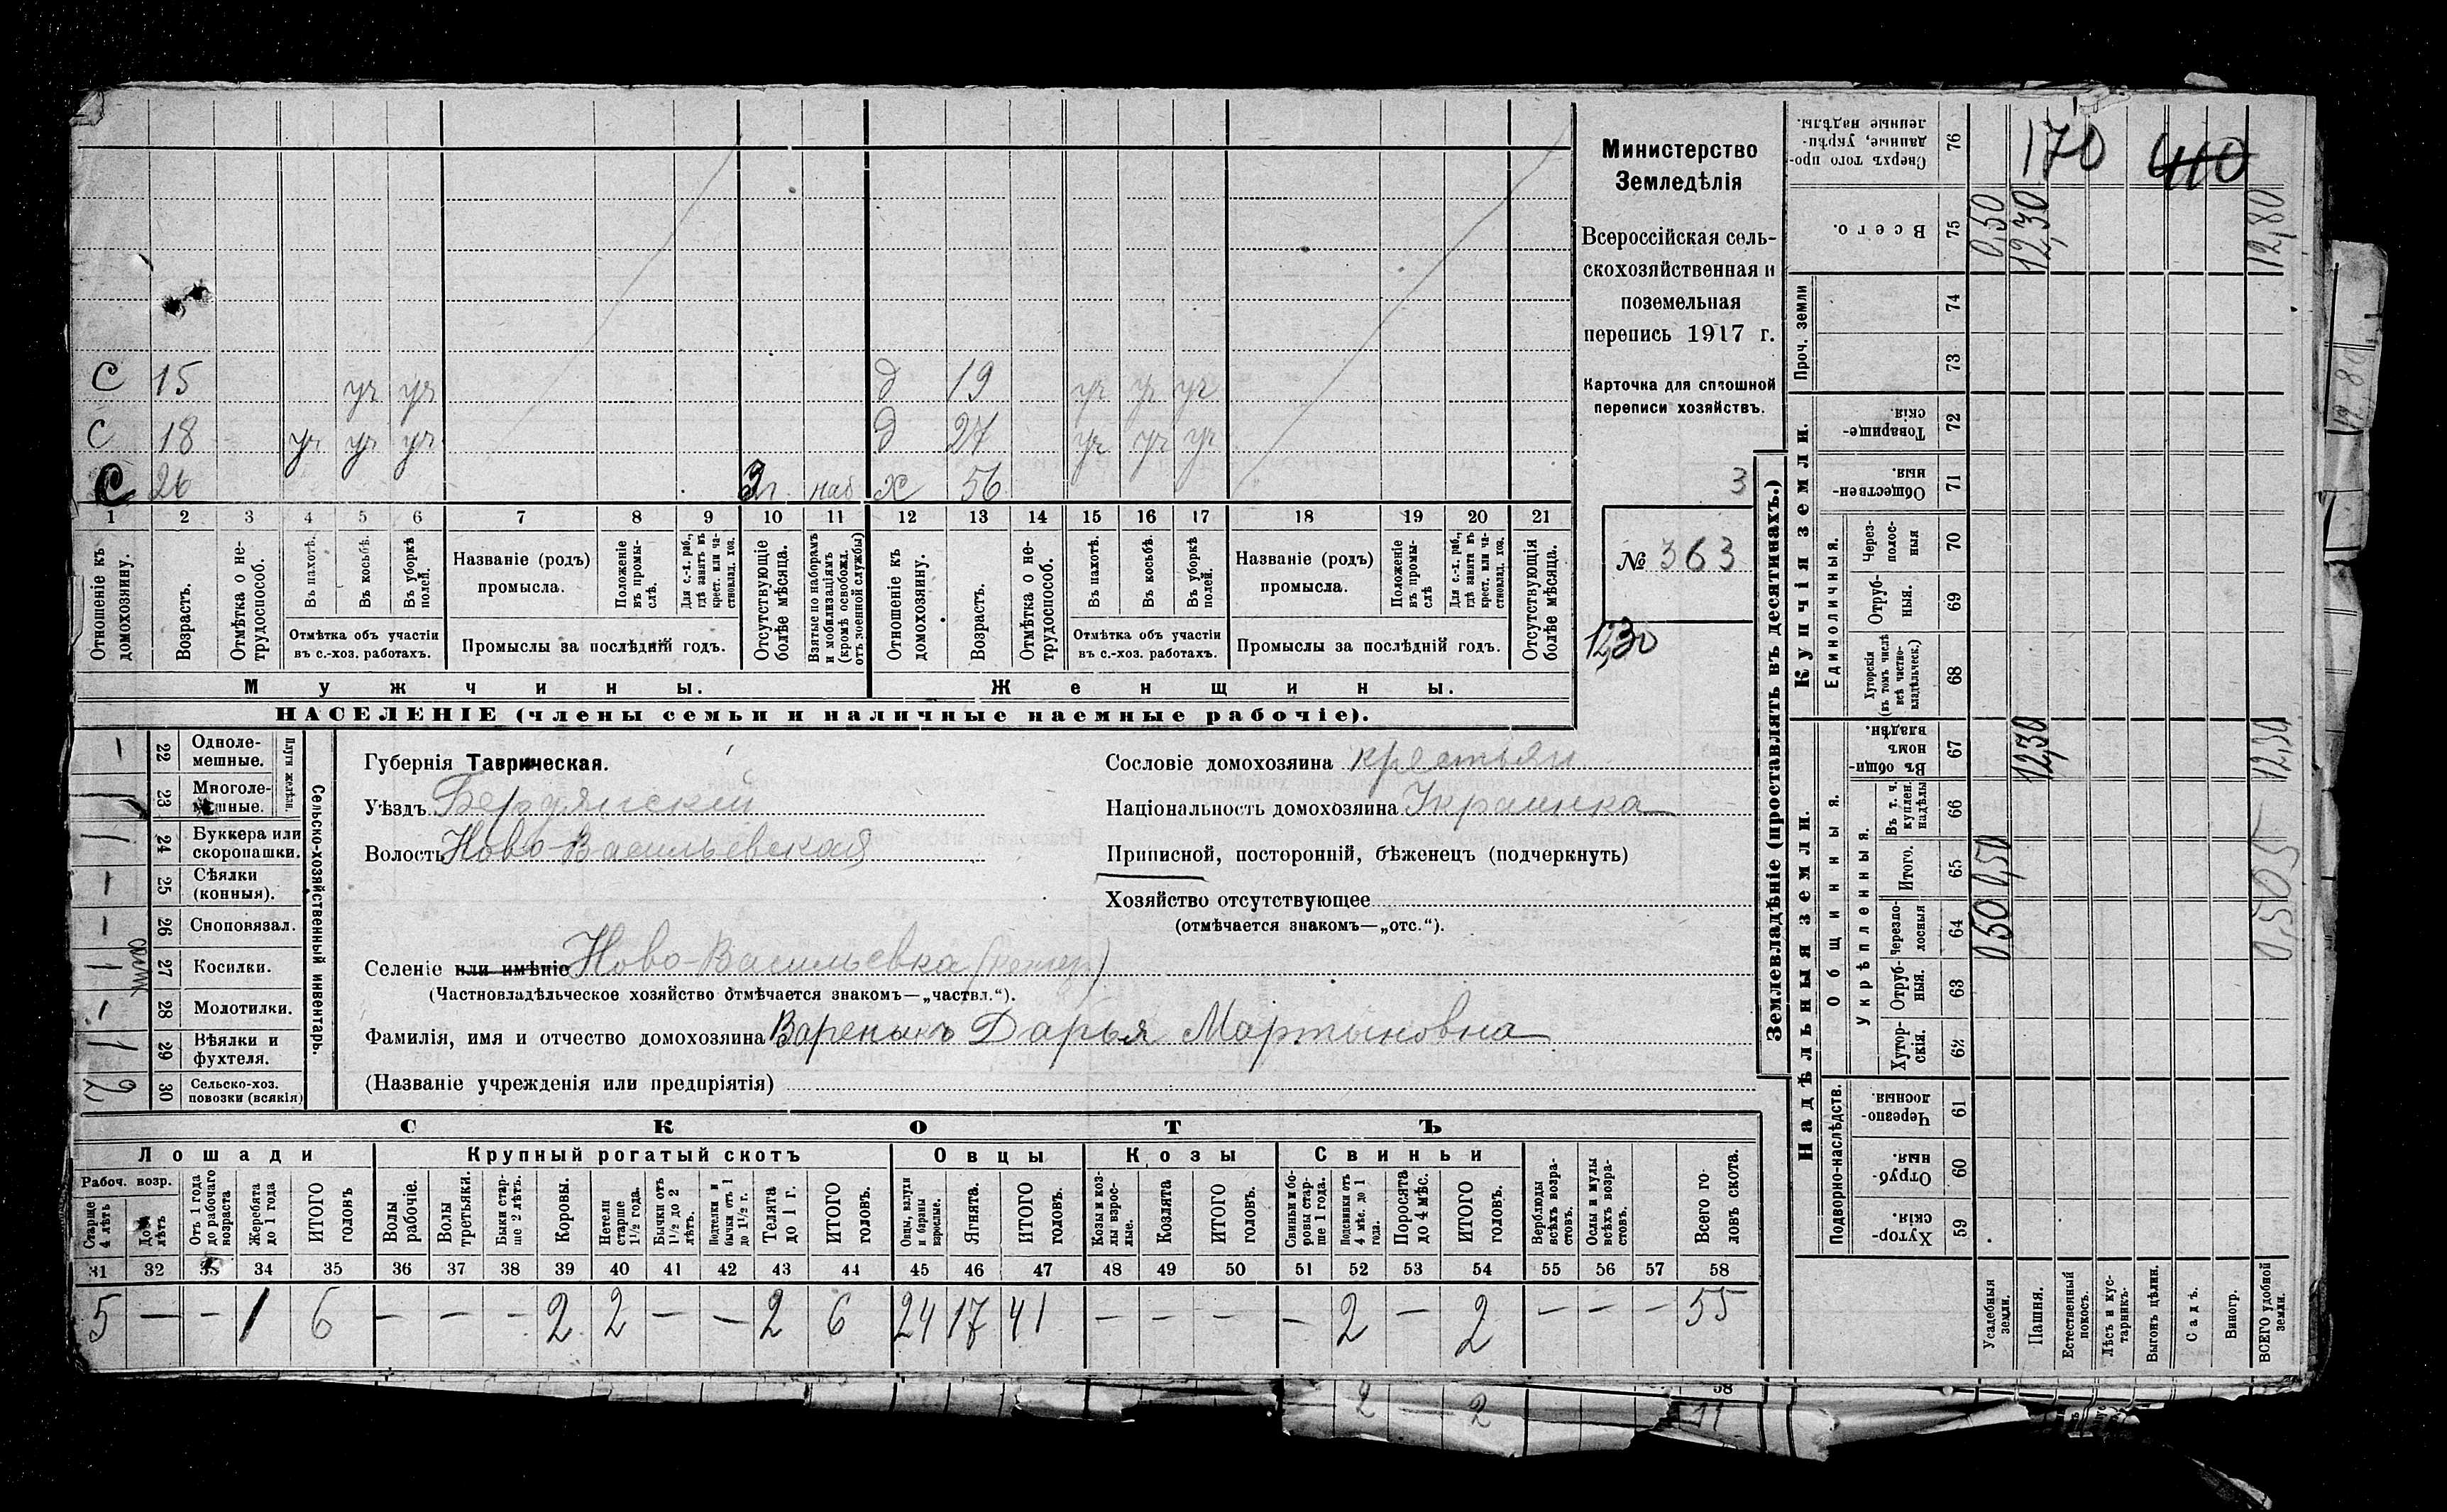 С 15 уч уч д 19 уч уч уч
С 18 уч уч уч д 27 уч уч уч
С 26 наб х 56
1 2 3 4 5 6 7 8 9 10 11 12 13 14 15 16 17 18 19 20 21
Отношеніе къ домохозяину.
Возрастъ.
Отмѣтка о не-трудоспособ.
Въ пахотѣ.
Въ косьбѣ.
Въ уборкѣ полей.
Отмѣтка объ участіи
въ с.-хоз. работахъ.
Названіе (родъ)
промысла.
Положеніе въ промы-слѣ.
Для с.-х. раб., гдѣ занятъ въ крест. или ча-стновлад. хоз.
Промыслы за послѣдній годъ.
Отсутствующіе болѣе мѣсяца.
Взятые по наборамъ и мобилизаціямъ (кромѣ освобожд. отъ военной службы)
Отношеніе къ домохозяину.
Возрастъ.
Отмѣтка о не-трудоспособ.
Въ пахотѣ.
Въ косьбѣ.
Въ уборкѣ полей.
Отмѣтка объ участіи
въ с.-хоз. работахъ.
Названіе (родъ)
промысла.
Положеніе въ промы-слѣ
Для с.-х. раб., гдѣ занята въ крест. или ча-стновлад. хоз.
Промыслы за послѣдній годъ.
Отсутствующія болѣе мѣсяца.
Мужчины. Женщины.
НАСЕЛЕНІЕ (члены семьи и наличные наемные рабочіе).
Министерство
Земледѣлія
Всероссійская сель-
скохозяйственная и
поземельная
перепись 1917 г.
Карточка для сплошной
переписи хозяйствъ.
3
№ 363
12,30
Сельско-хозяйственный инвентарь.
Плуги желѣзн.
22 Одноле-мешные.
23 Многоле-мешные.
24 Буккера или скоропашки.
25 Сѣялки (конныя).
26 Сноповязал.
27 Косилки.
28 Молотилки.
29 Вѣялки и фухтеля.
30 Сельско-хоз. повозки (всякія)
Губернія Таврическая.
Уѣздъ Бердянскій
Волость Ново-Васильевская
Селеніе или имѣніе Ново-Васильевка
(Частновладѣльческое хозяйство отмѣчается знакомъ—„частвл.“).
Фамилія, имя и отчество домохозяина Вареныкъ Дарья Мартыновна
(Названіе учрежденія или предпріятія)
Сословіе домохозяина крестьян
Національность домохозяина Украинка
Приписной, посторонній, бѣженецъ (подчеркнуть)
Хозяйство отсутствующее
(отмѣчается знакомъ—„отс.“).
СКОТЪ
Лошади Крупный рогатый скотъ Овцы Козы Свиньи
Рабоч. возр.
Старше 4 лѣтъ
До 4 лѣтъ
Отъ 1 года до рабочаго возраста
Жеребята до 1 года
ИТОГО головъ
Волы рабочіе.
Волы третьяки.
Быки стар-ше 2 лѣтъ.
Коровы.
Нетели старше 1½ года.
Бычки отъ 1½ до 2 лѣтъ.
Подтелки и бычки отъ 1 до 1½ г.
Телята до 1 г.
ИТОГО головъ.
Овцы, валухи и бараны взрослые.
Ягнята.
ИТОГО головъ.
Козы и коз-лы взрос-лые.
Козлята
ИТОГО головъ.
Свиньи и бо-ровы стар-ше 1 года.
Подсвинки отъ 4 мѣс. до 1 года.
Поросята до 4 мѣс.
ИТОГО головъ.
Верблюды всѣхъ возра-стовъ.
Ослы и мулы всѣхъ возра-стовъ.
Всего го-ловъ скота.
31 32 33 34 35 36 37 38 39 40 41 42 43 44 45 46 47 48 49 50 51 52 53 54 55 56 57 58
5 — — 1 6 — — — 2 2 — — 2 6 24 17 41 — — — — 2 — 2 — — — 55
Землевладѣніе (проставлять въ десятинахъ.)
Надѣльныя земли. Купчія земли. Проч. земли
Подворно-наслѣдств. Общинныя. Укрѣпленныя. Единоличныя.
Хутор-скія. 59
Отруб-ныя. 60
Черезпо-лосныя. 61
Хутор-скія. 62
Отруб-ныя. 63
Черезпо-лосныя 64
Итого. 65
Въ т. ч. куплен. надѣлы 66
Въ общин-номъ владѣн. 67
Хуторскія (въ томъ числѣ всѣ частно-владѣльческ.) 68
Отруб-ныя. 69
Через-полос-ныя 70
Обществен-ныя. 71
Товарище-скія. 72
73
74
Всего. 75
Сверхъ того про-данные, укрѣп-ленные надѣлы. 76
Усадебныя земли. 0,50 0,50 0,50
Пашня. 12,30 12,30
Естественный покосъ.
Лѣсъ и кус-тарникъ.
Выгонъ цѣлин.
Садъ.
Виногр.
ВСЕГО удобной земли. 12,30 12,80
170 410
58
2 — 2 11